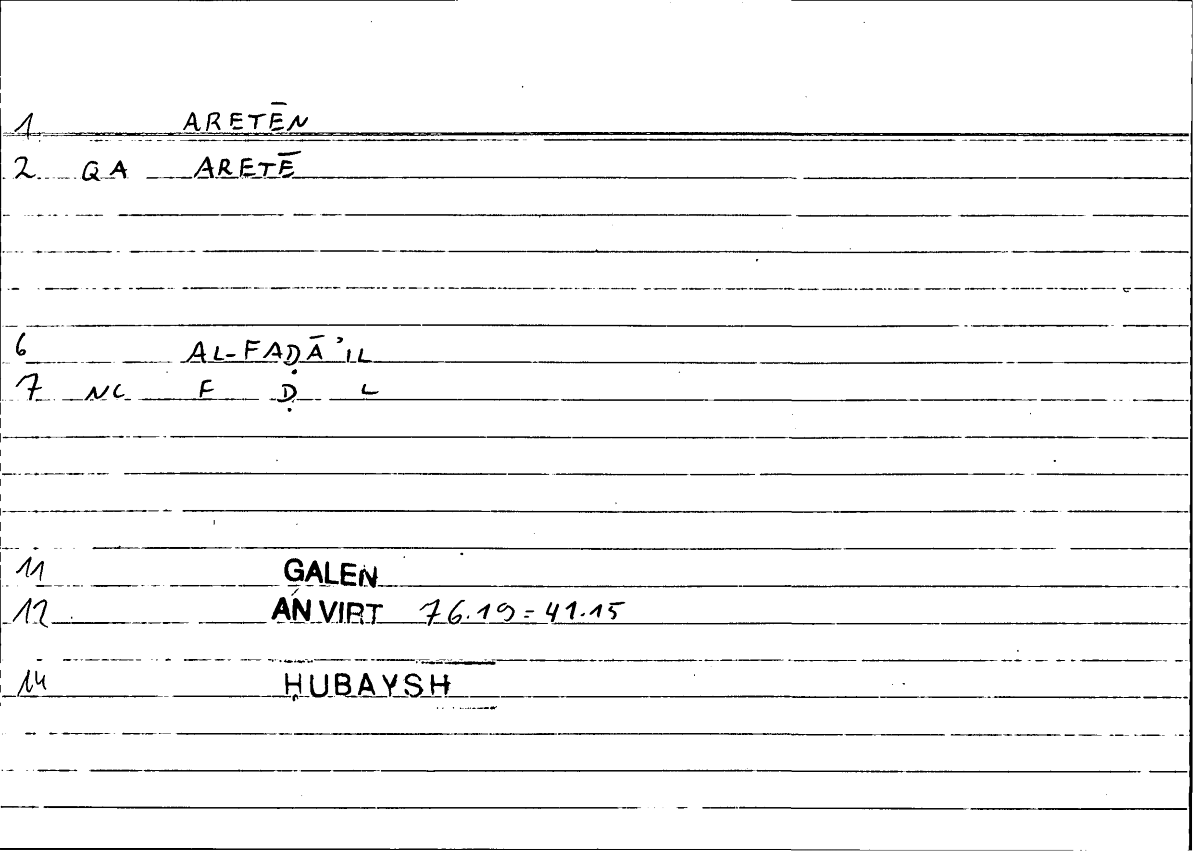 1 ARETĒN
2 QA ARETĒ
6 AL-FAḌĀ'IL
7 NC F Ḍ L
11 GALEN
12 AN VIRT 76.19 = 41.15
14 ḤUBAYSH